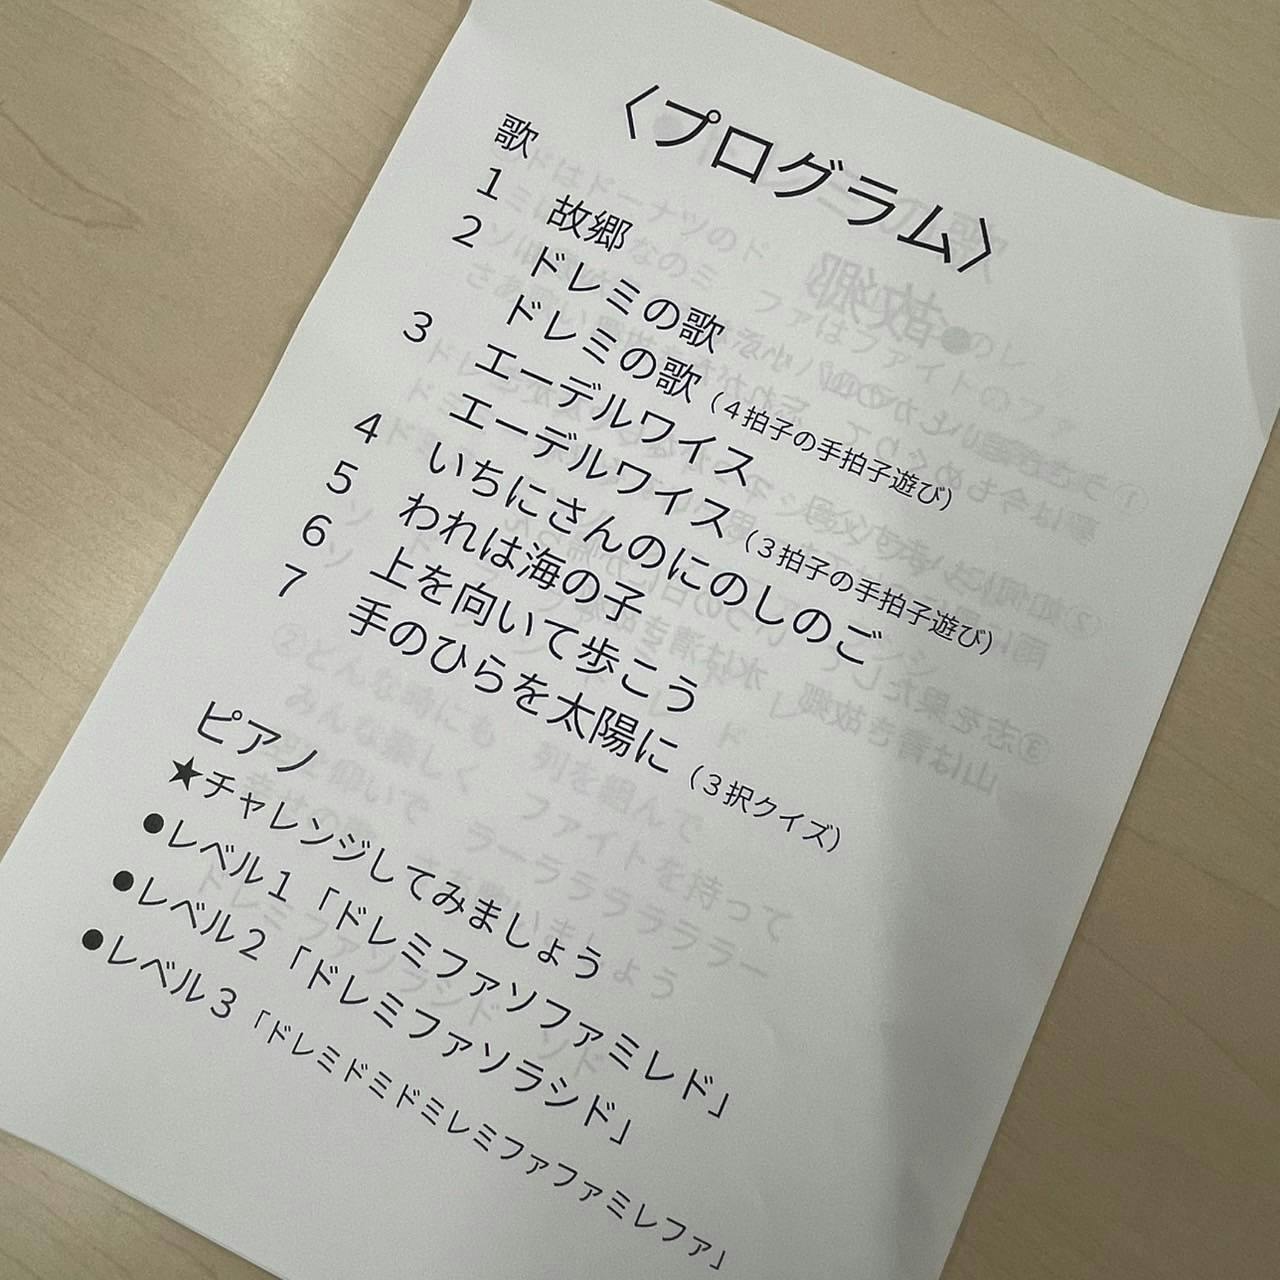 〈プログラム〉
歌
1 故郷
2 ドレミの歌
ドレミの歌(4拍子の手拍子遊び)
3 エーデルワイス
エーデルワイス(3拍子の手拍子遊び)
4 いちにさんのにのしのご
5 われは海の子
6 上を向いて歩こう
7 手のひらを太陽に(3択クイズ)
ピアノ
★チャレンジしてみましょう
●レベル1「ドレミファソファミレド」
●レベル2「ドレミファソラシド」
●レベル3「ドレミドミドミレミファファミレファ」